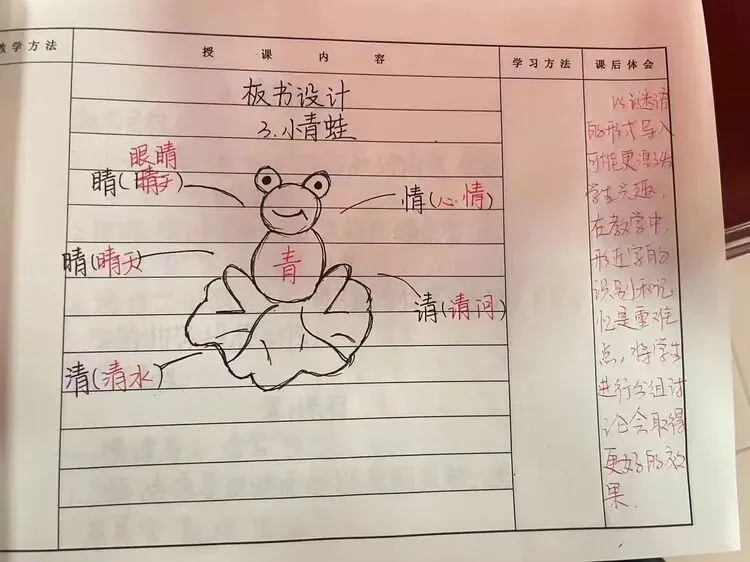 教学方法 授课内容 学习方法 课后体会
板书设计
3.小青蛙
眼睛
睛(
情(心情)
晴(晴天)
青
请(请问)
清(清水)
以谜语
的形式导入
可能更激发
学生兴趣,
在教学中,
形近字的
识别和记
忆是重难
点,将学生
进行分组讨
论会取得
更好的效
果.